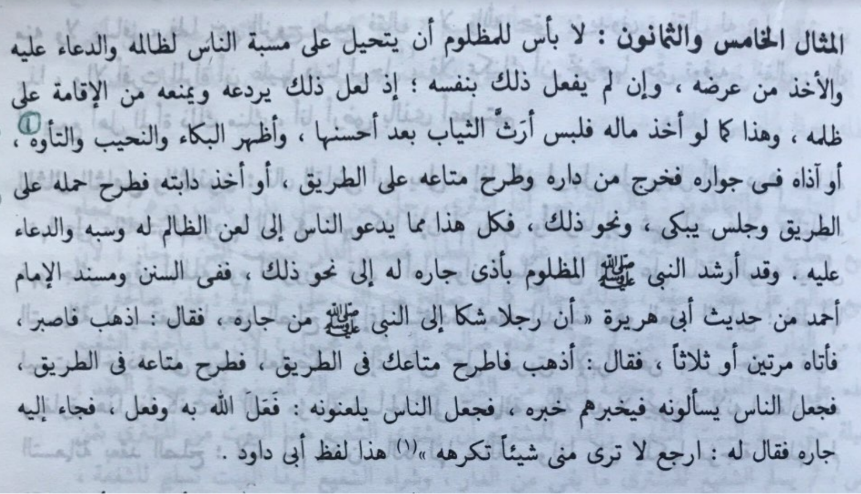 المثال الخامس والثمانون : لا بأس للمظلوم أن يتحيل على مسبة الناس لظالمه والدعاء عليه
والأخذ من عرضه ، وإن لم يفعل ذلك بنفسه ؛ إذ لعل ذلك يردعه ويمنعه من الإقامة على
ظلمه ، وهذا كما لو أخذ ماله فلبس أرَثَّ الثياب بعد أحسنها ، وأظهر البكاء والنحيب والتأوه ،
أو آذاه فى جواره فخرج من داره وطرح متاعه على الطريق ، أو أخذ دابته فطرح حمله على
الطريق وجلس يبكى ، ونحو ذلك ، فكل هذا مما يدعو الناس إلى لعن الظالم له وسبه والدعاء
عليه . وقد أرشد النبى ﷺ المظلوم بأذى جاره له إلى نحو ذلك ، ففى السنن ومسند الإمام
أحمد من حديث أبى هريرة « أن رجلا شكا إلى النبى ﷺ من جاره ، فقال : اذهب فاصبر ،
فأتاه مرتين أو ثلاثاً ، فقال : أذهب فاطرح متاعك فى الطريق ، فطرح متاعه فى الطريق ،
فجعل الناس يسألونه فيخبرهم خبره ، فجعل الناس يلعنونه : فَعَلَ الله به وفعل ، فجاء إليه
جاره فقال له : ارجع لا ترى منى شيئاً تكرهه »(١) هذا لفظ أبى داود .